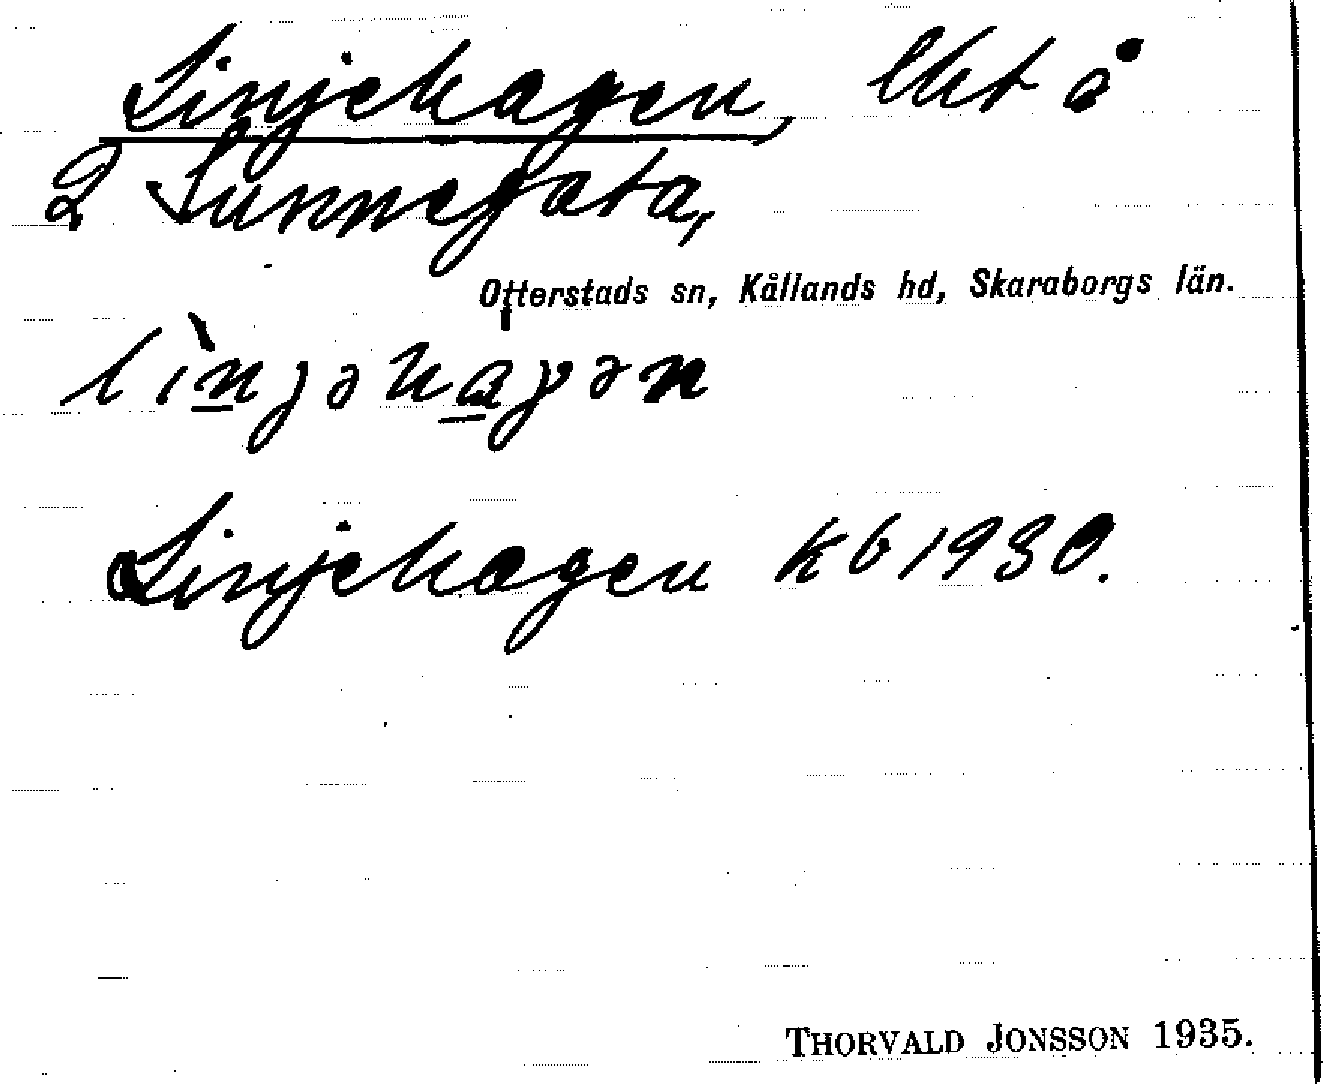 Linjehagen, lht å
2 Sunnegata,
Otterstads sn, Kållands hd, Skaraborgs län.
lìnjəhaγən
Linjehagen kb 1930.
THORVALD JONSSON 1935.